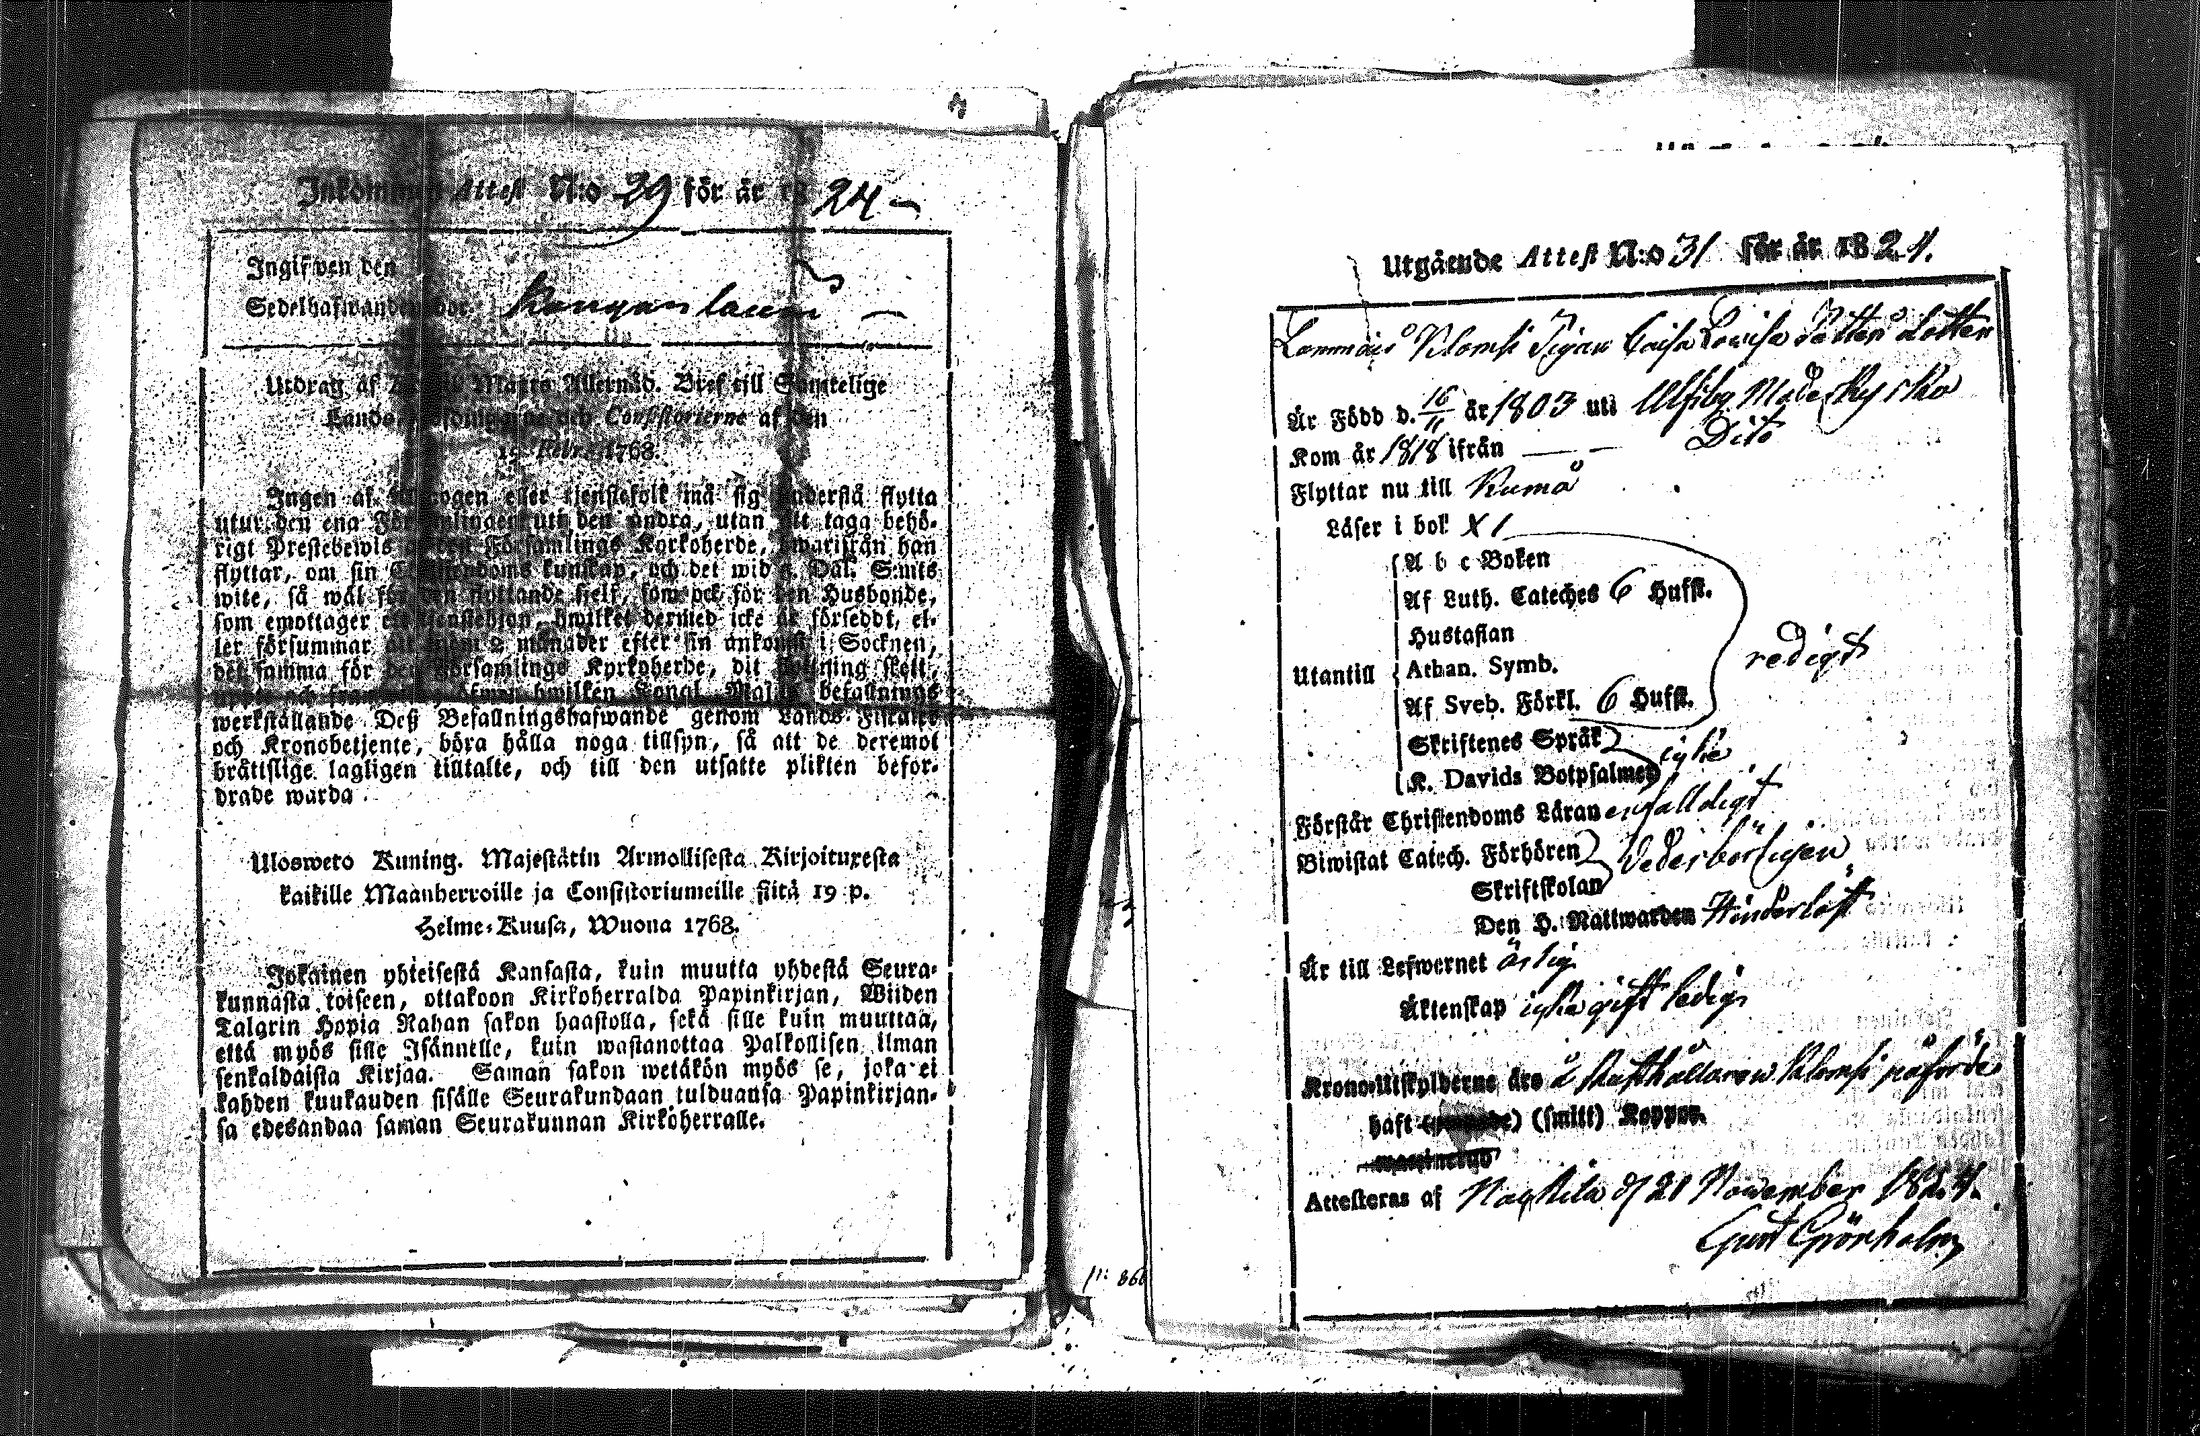 Inkommen Attest N:o 29 för år 1824
Ingifwen den
Sedelhafwanden bor
Utdrag af Kongl. Maj:ts Allernåd. Bref till Samtelige
Landshöfdingarne och Consistorierne af den
19 Febr. 1768.
Ingen af Allmogen eller tjenstefolk må sig understå flytta
utur den ena Församlingen uti den andra, utan att taga behö-
rigt Prestebewis af den Församlings Kyrkoherde, hwarifrån han
flyttar, om sin Christendoms kunskap, och det wid 5. Dal. S:mts
wite, så wäl för den flyttande sjelf, som ock för den Husbonde,
som emottager ett tjenstehjon, hwilket dermed icke är försedt, el-
ler försummar att inom 2 månader efter sin ankomst i Socknen,
det samma för den Församlings Kyrkoherde, dit flyttning skett,
hwilken Kongl. Maj:ts befallnings
werkställande Deß Befallningshafwande genom Lands Fiscaler
och Kronobetjente, böra hålla noga tillsyn, så att de deremot
bråttslige lagligen tilltalte, och till den utsatte plikten befor-
drade warda.
Ulosweto Kuning. Majestätin Armollisesta Kirjoituxesta
kaikille Maanherroille ja Consistoriumeille siitä 19 p.
Helme-Kuusa, Wuona 1768.
Jokainen yhteisestä Kansasta, kuin muutta yhdestä Seura-
kunnasta toiseen, ottakoon Kirkoherralda Papinkirjan, Wiiden
Talarin Hopia Rahan sakon haastolla, sekä sille kuin muuttaa,
että myös sille Isännelle, kuin wastanottaa Palkollisen ilman
senkaldaista Kirjaa. Saman sakon wetäkön myös se, joka ei
kahden kuukauden sisälle Seurakundaan tulduansa Papinkirjan-
sa edesandaa saman Seurakunnan Kirkoherralle.
Utgående Attest N:o 31 för år 1824.
Klomsi Pigan Caisa Lovisa Petters dotter
Är Född d. 16/11 år 1803 uti Ulfsby Moder Kyrko
Kom år 1818 ifrån — — Dito
Flyttar nu till Kumå
Läser i bok X 1
A b c Boken
Af Luth. Cateches 6 Hufst.
Hustaflan
Utantill Athan. Symb. redigt
Af Sveb. Förkl. 6 Hufst.
Skriftenes Språk
K. Davids Botpsalmer icke
Förstår Christendoms Läran enfalldigt
Biwistat Catech. Förhören
Skriftskolan Vederbörligen
Den H. Nattwarden Hinderlöst
Är till Lefwernet ärlig
Äktenskap icke gift ledig
Kronoutskylderne äro å Rusthållaren Klomsi påförde
haft (smitt) Koppor.
Attesteras af Nackila d 21 November 1824.
Gust Grönholm